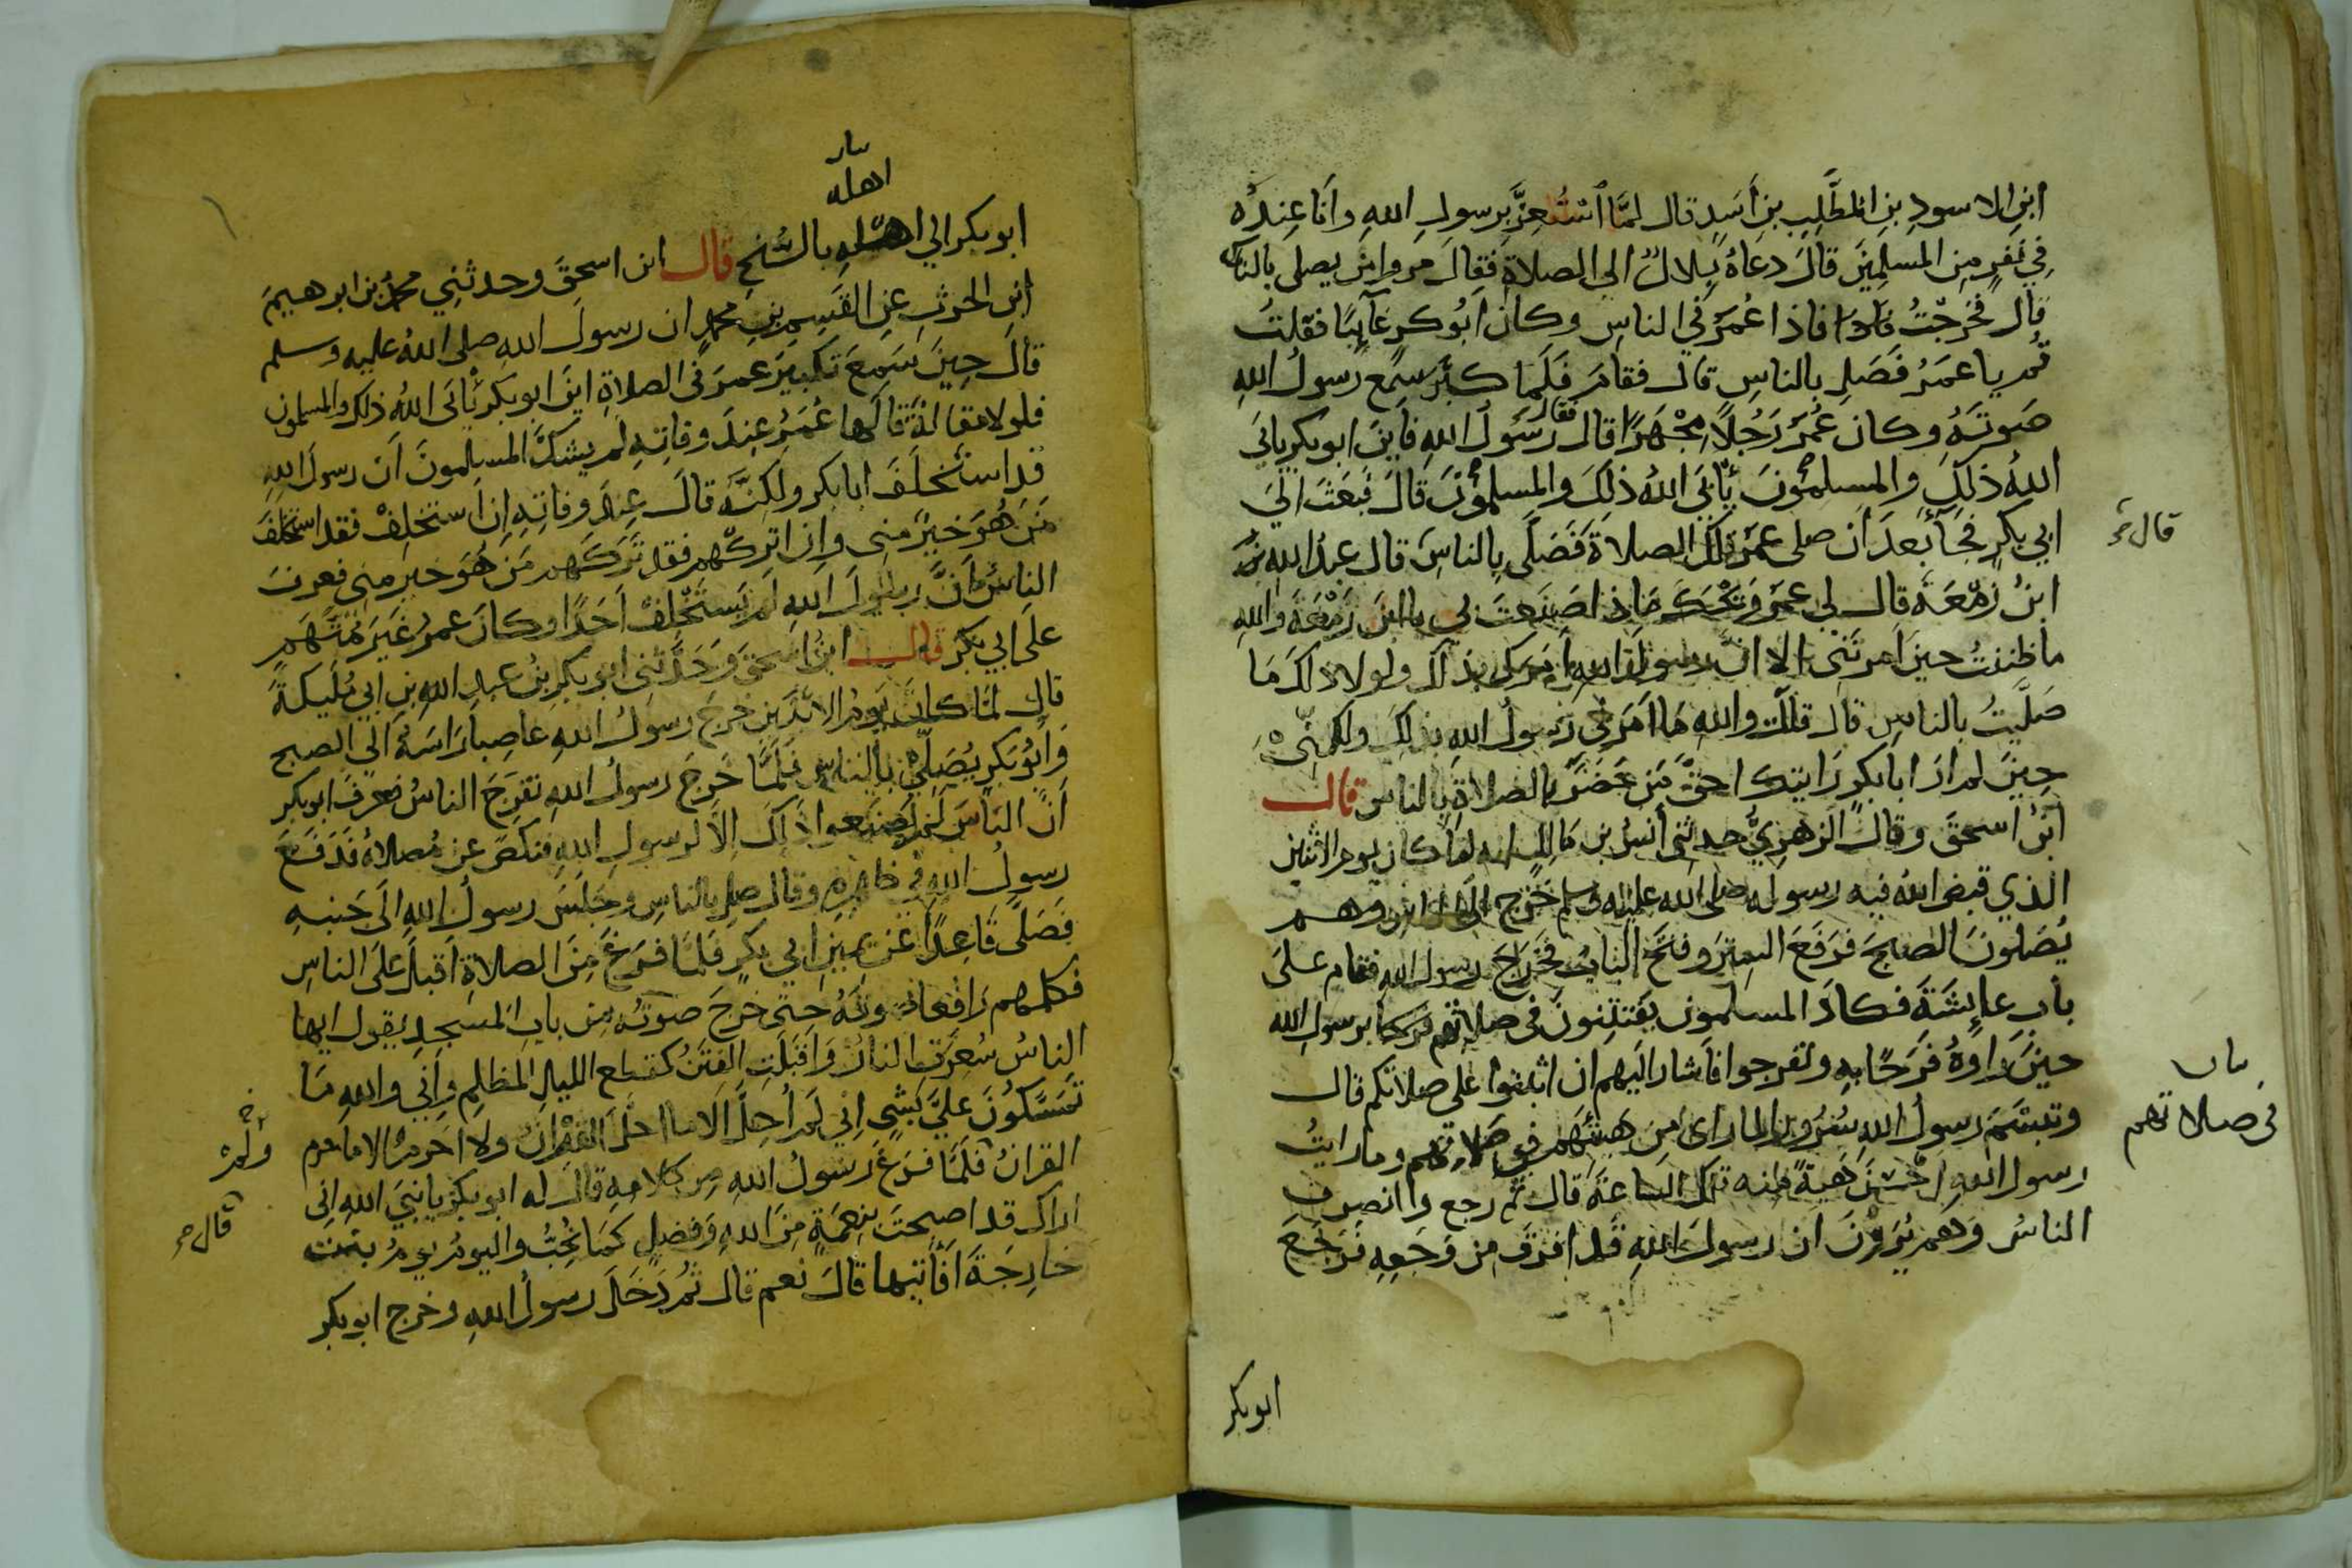 ابنِ الاسودِ بنِ المطَّلِبِ بنِ أَسَدٍ قال لمَّا ٱسْتُعِزَّ برسولِ اللهِ وأَنا عِندَهُ
فِي نَفَرٍ مِنَ المسلِمِينَ قالَ دعاهُ بِلالٌ الي الصلاةِ فقالَ مروا مَن يصلى بالناس
قال فخرجْتُ فاذا عُمَرُ في الناسِ وكان أَبُو بكرٍ غآئِبًا فقلتُ
قُم يا عمَرُ فَصَلِّ بالناسِ قال فقامَ فَلَما كبَّرَ سمِعَ رسولُ اللهِ
صَوتَهُ وكان عُمَرُ رَجُلًا مِجْهَرًا قال فقال رَسُولُ اللهِ فأَينَ ابوبكرٍ يابَي
اللهُ ذلِكَ والمسلِمُونَ يَأْبَي اللهُ ذلِكَ والمسلِمُونَ قالَ فَبَعَثَ الَي
ابي بكرٍ فجَآءَ بعدَ أن صلى عمرُ تلكَ الصلاةَ فَصَلَّى بِالناسِ قال عبدُ اللهِ بنُ
قال
ابنُ زَمْعَةَ قال لى عمرُ وَيْحَكَ مَاذا صَنَعتَ بي ياابنَ زَمْعَةَ واللهِ
ماظننتُ حينَ امرتَنِى الا انَّ رسولَ اللهِ امرَكَ بذلكَ ولولا ذلكَ مَا
صَلَّيتُ بالناسِ قال قلتُ واللهِ مَا امَرَنِى رَسُولُ اللهِ بذلِكَ ولكِنِّى
حِينَ لم ارَ ابا بكرٍ رَايتكَ احقَّ مَن حَضَرَ بالصلاةِ بِالناسِ قال
ابنُ اسحقَ وقالَ الزهرِيُّ حدثنى أنسُ بن مَالِكٍ انه لما كان يوم الاثنين
الذي قبض اللهُ فيه رسوله صلى الله عليه وسلم خَرَج الَى الناسِ وهم
يُصَلونَ الصبحَ فَرَفَعَ السِترَ وفتَحَ البَابَ فخَرَجَ رسولُ اللهِ فقام علَى
بابِ عايِشَةَ فكادَ المسلمون يَفتَتِنونَ فى صلاتهم فرحا برسولِ الله
حينَ راوهُ فَرَحًا بهِ وتفرجوا فاَشار اليهم ان اثبتوا على صلاتكم قال
بيان
فى صلاتهم
وتبسَّمَ رسولُ اللهِ سُرُورًا لما راى مِن هيئَتِهِم في صَلاتهم وما رايتُ
رسولَ اللهِ احْسَنَ هَيةً منه تلكَ الساعَةَ قال ثُم رجع وانصرف
الناسُ وَهم يُرَوْنَ ان رسولَ اللهِ قَد افرَقَ مِن وَجَعِهِ فرَجَعَ
ابوبكر
بيان
اهله
ابو بكر الي اهلِهِ بالسُّنحِ قال ابن اسحقَ وحدثنِي محمدُ بن ابرهيمَ
ابنِ الحرثِ عنِ القسِمِ بنِ محمدٍ ان رسولَ اللهِ صلى اللهُ عليهِ وسلم
قالَ حِينَ سَمِعَ تكبيرَ عمرَ فى الصلاةِ اينَ ابو بكرٍ يَأبَى اللهُ ذلك والمسلمون
فلولا مقالةٌ قالَها عُمَرُ عِندَ وفاتِهِ لم يشكَّ المسلِمونَ أَن رسولَ اللهِ
قد استَخلَفَ ابا بكر ولَكِنَّهُ قالَ عِندَ وفاتِهِ اِن أَستخلِفْ فقد استخلَفَ
مَن هُوَ خيرٌ منى واِن اترُكْهم فقد تَرَكَهم مَن هُوَ خير منى فعرفَ
الناسُ انَّ رسولَ اللهِ لم يَستَخْلِفْ اَحَدًا وكانَ عمرُ غَيرَ مُتَّهَمٍ
علَى ابي بكر قال ابنُ اسحقَ وَحَدَّثنى ابو بكرِ بنُ عبدِ اللهِ بنِ ابي مُلَيكةَ
قال لمَّا كانَ يَومُ الاثنَينِ خرجَ رسولُ اللهِ عاصِبًا رَاسَهُ الَي الصبحِ
وَأَبُو بَكرٍ يُصَلِّي بالناسِ فلمَّا خَرجَ رسولُ اللهِ تفرَّجَ الناسُ فعرفَ ابوبكرٍ
اَنَّ الناسَ لم يصنَعوا ذلكَ الَّا لرسولِ اللهِ فنكصَ عن مُصلاهُ فَدَفَعَ
رسولُ اللهِ في ظهرِهِ وقال صلِ بالناسِ وجَلَسَ رسولُ اللهِ الَى جَنبِهِ
فصَلَّى قَاعِدًا عَن يمينِ ابي بكرٍ فلمَّا فرَغَ مِنَ الصلاةِ اَقبلَ علَى الناسِ
فكلمهم رَافعا صوتَهُ حتى خرجَ صوتُه مِن بابِ المسجدِ يَقول ايها
الناسُ سُعِرَتِ النارُ وَاَقبَلَتِ الفِتَنُ كقطعِ الليلِ المظلِمِ وإني واللهِ مَا
تَمَسَّكُونَ علَيَّ بشيءٍ اِني لَم اُحِلَّ الَّا ما احلَّ القرانُ ولا احَرِّمُ الا ما حرم
ولَمْ
القرانُ فلمَّا فرَغَ رَسولُ اللهِ مِن كلامِهِ قال له ابو بكرٍ يا نبيَ اللهِ انى
قال
اراك قد اصبحتَ بنعمَةٍ مِنَ اللهِ وَفضلٍ كَمَا نُحِبُّ واليومُ يومُ بنت
خارِجَةَ اَفآتيها قالَ نعم قال ثُم دَخلَ رسولُ اللهِ وخرج ابوبكر